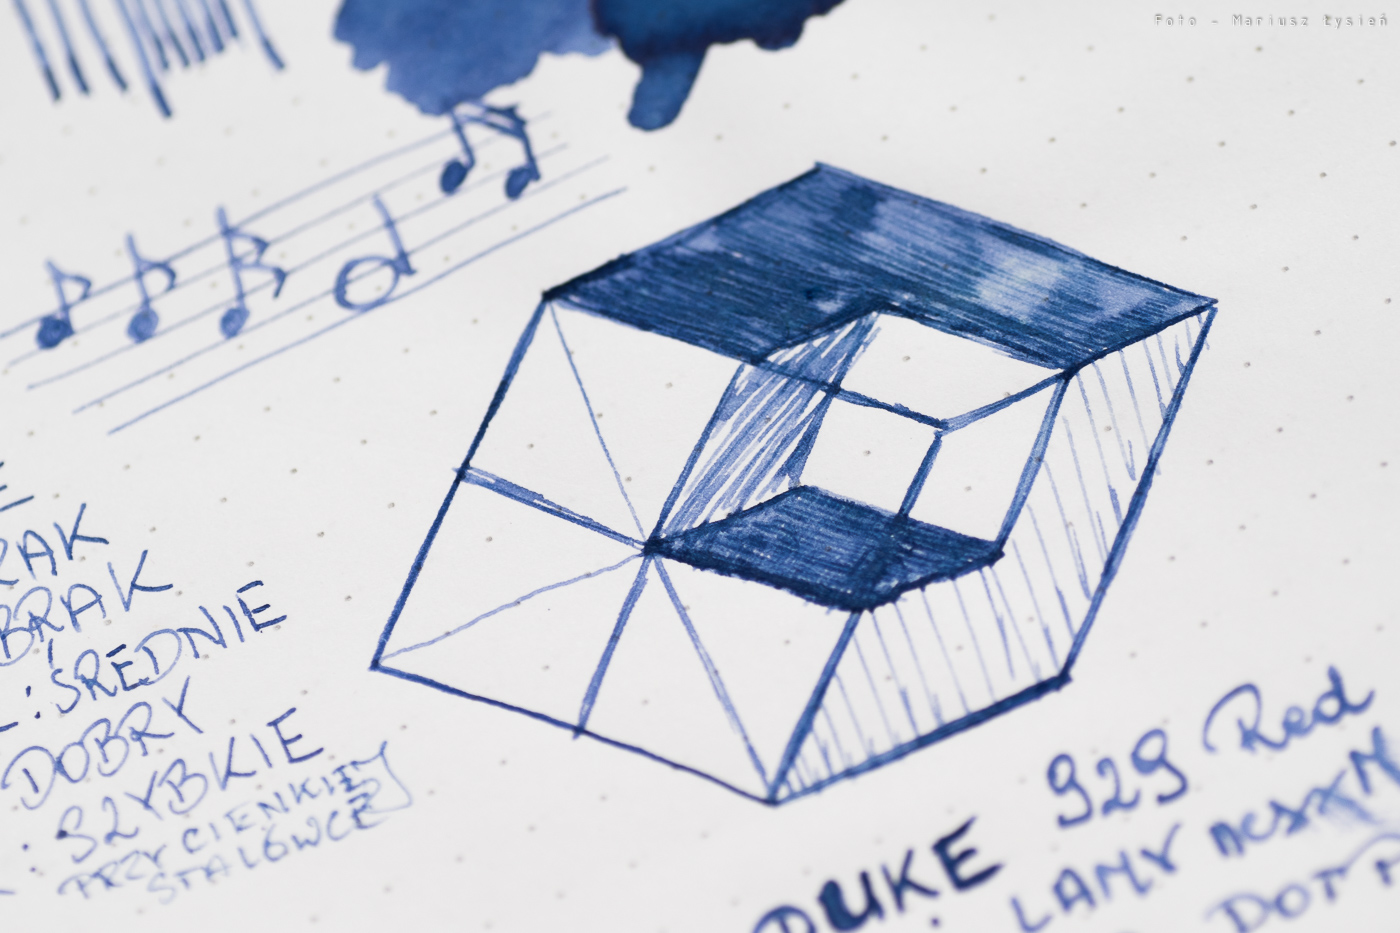 Foto - Mariusz Łysień
RAK
BRAK
: ŚREDNIE
DOBRY
: SZYBKIE
PRZY CIENKIEJ
STALÓWCE
DUKE 929 Red
: LAMY
DOT